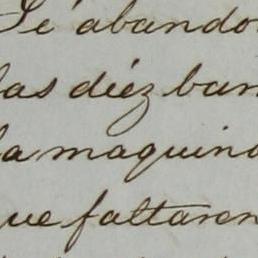 Se abando
las diéz ban
la maquina
que faltaron